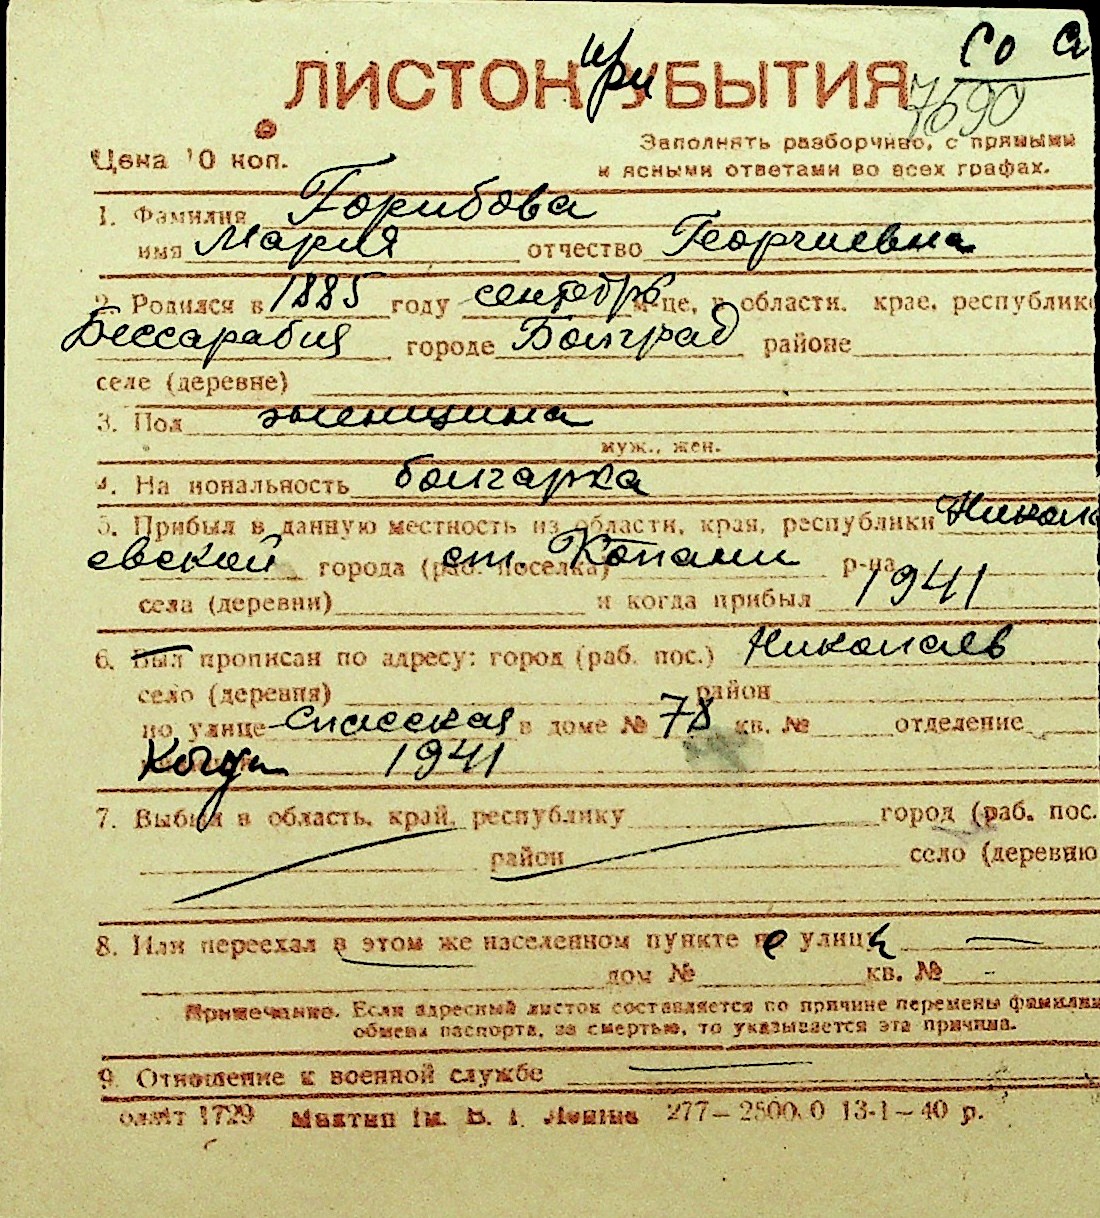 Со с
ЛИСТОК при УБЫТИЯ
7590
Цена 10 коп.
Заполнять разборчиво, с прямыми
и ясными ответами во всех графах.
1. Фамилия Горибова
имя Мария отчество Георгиевна
2. Родился в 1885 году сентябрь м-це, в области, крае, республике
Бессарабия городе Болград районе
селе (деревне)
3. Пол женщина
муж., жен.
4. Национальность болгарка
5. Прибыл в данную местность из области, края, республики Никола
евской города (раб. поселка) ст. Копани р-на
села (деревни) и когда прибыл 1941
6. Был прописан по адресу: город (раб. пос.) Николаев
село (деревня) район
по улице Спасская в доме № 78 кв. № отделение
Когда 1941
7. Выбыл в область, край, республику город (раб. пос.
район село (деревню
8. Или переехал в этом же населенном пункте с улицы —
дом № кв. № -
Примечание. Если адресный листок составляется по причине перемены фамилии
обмена паспорта, за смертью, то указывается эта причина.
9. Отношение к военной службе —
1729 им. В. И. Ленина 277—2500.0 13-1—40 р.